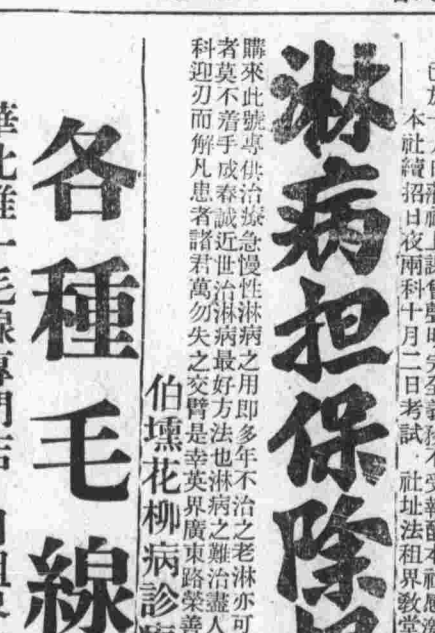 本社續招日夜兩科十月二日考試 社址法租界教堂
淋病担保除
購來此號專供治療急慢性淋病之用即多年不治之老淋亦可
者莫不着手成春誠近世治淋病最好方法也淋病之難治盡人
科迎刃而解凡患者諸君萬勿失之交臂是幸英界廣東路榮善
伯壎花柳病診
各種毛線
華北唯一毛線專門店